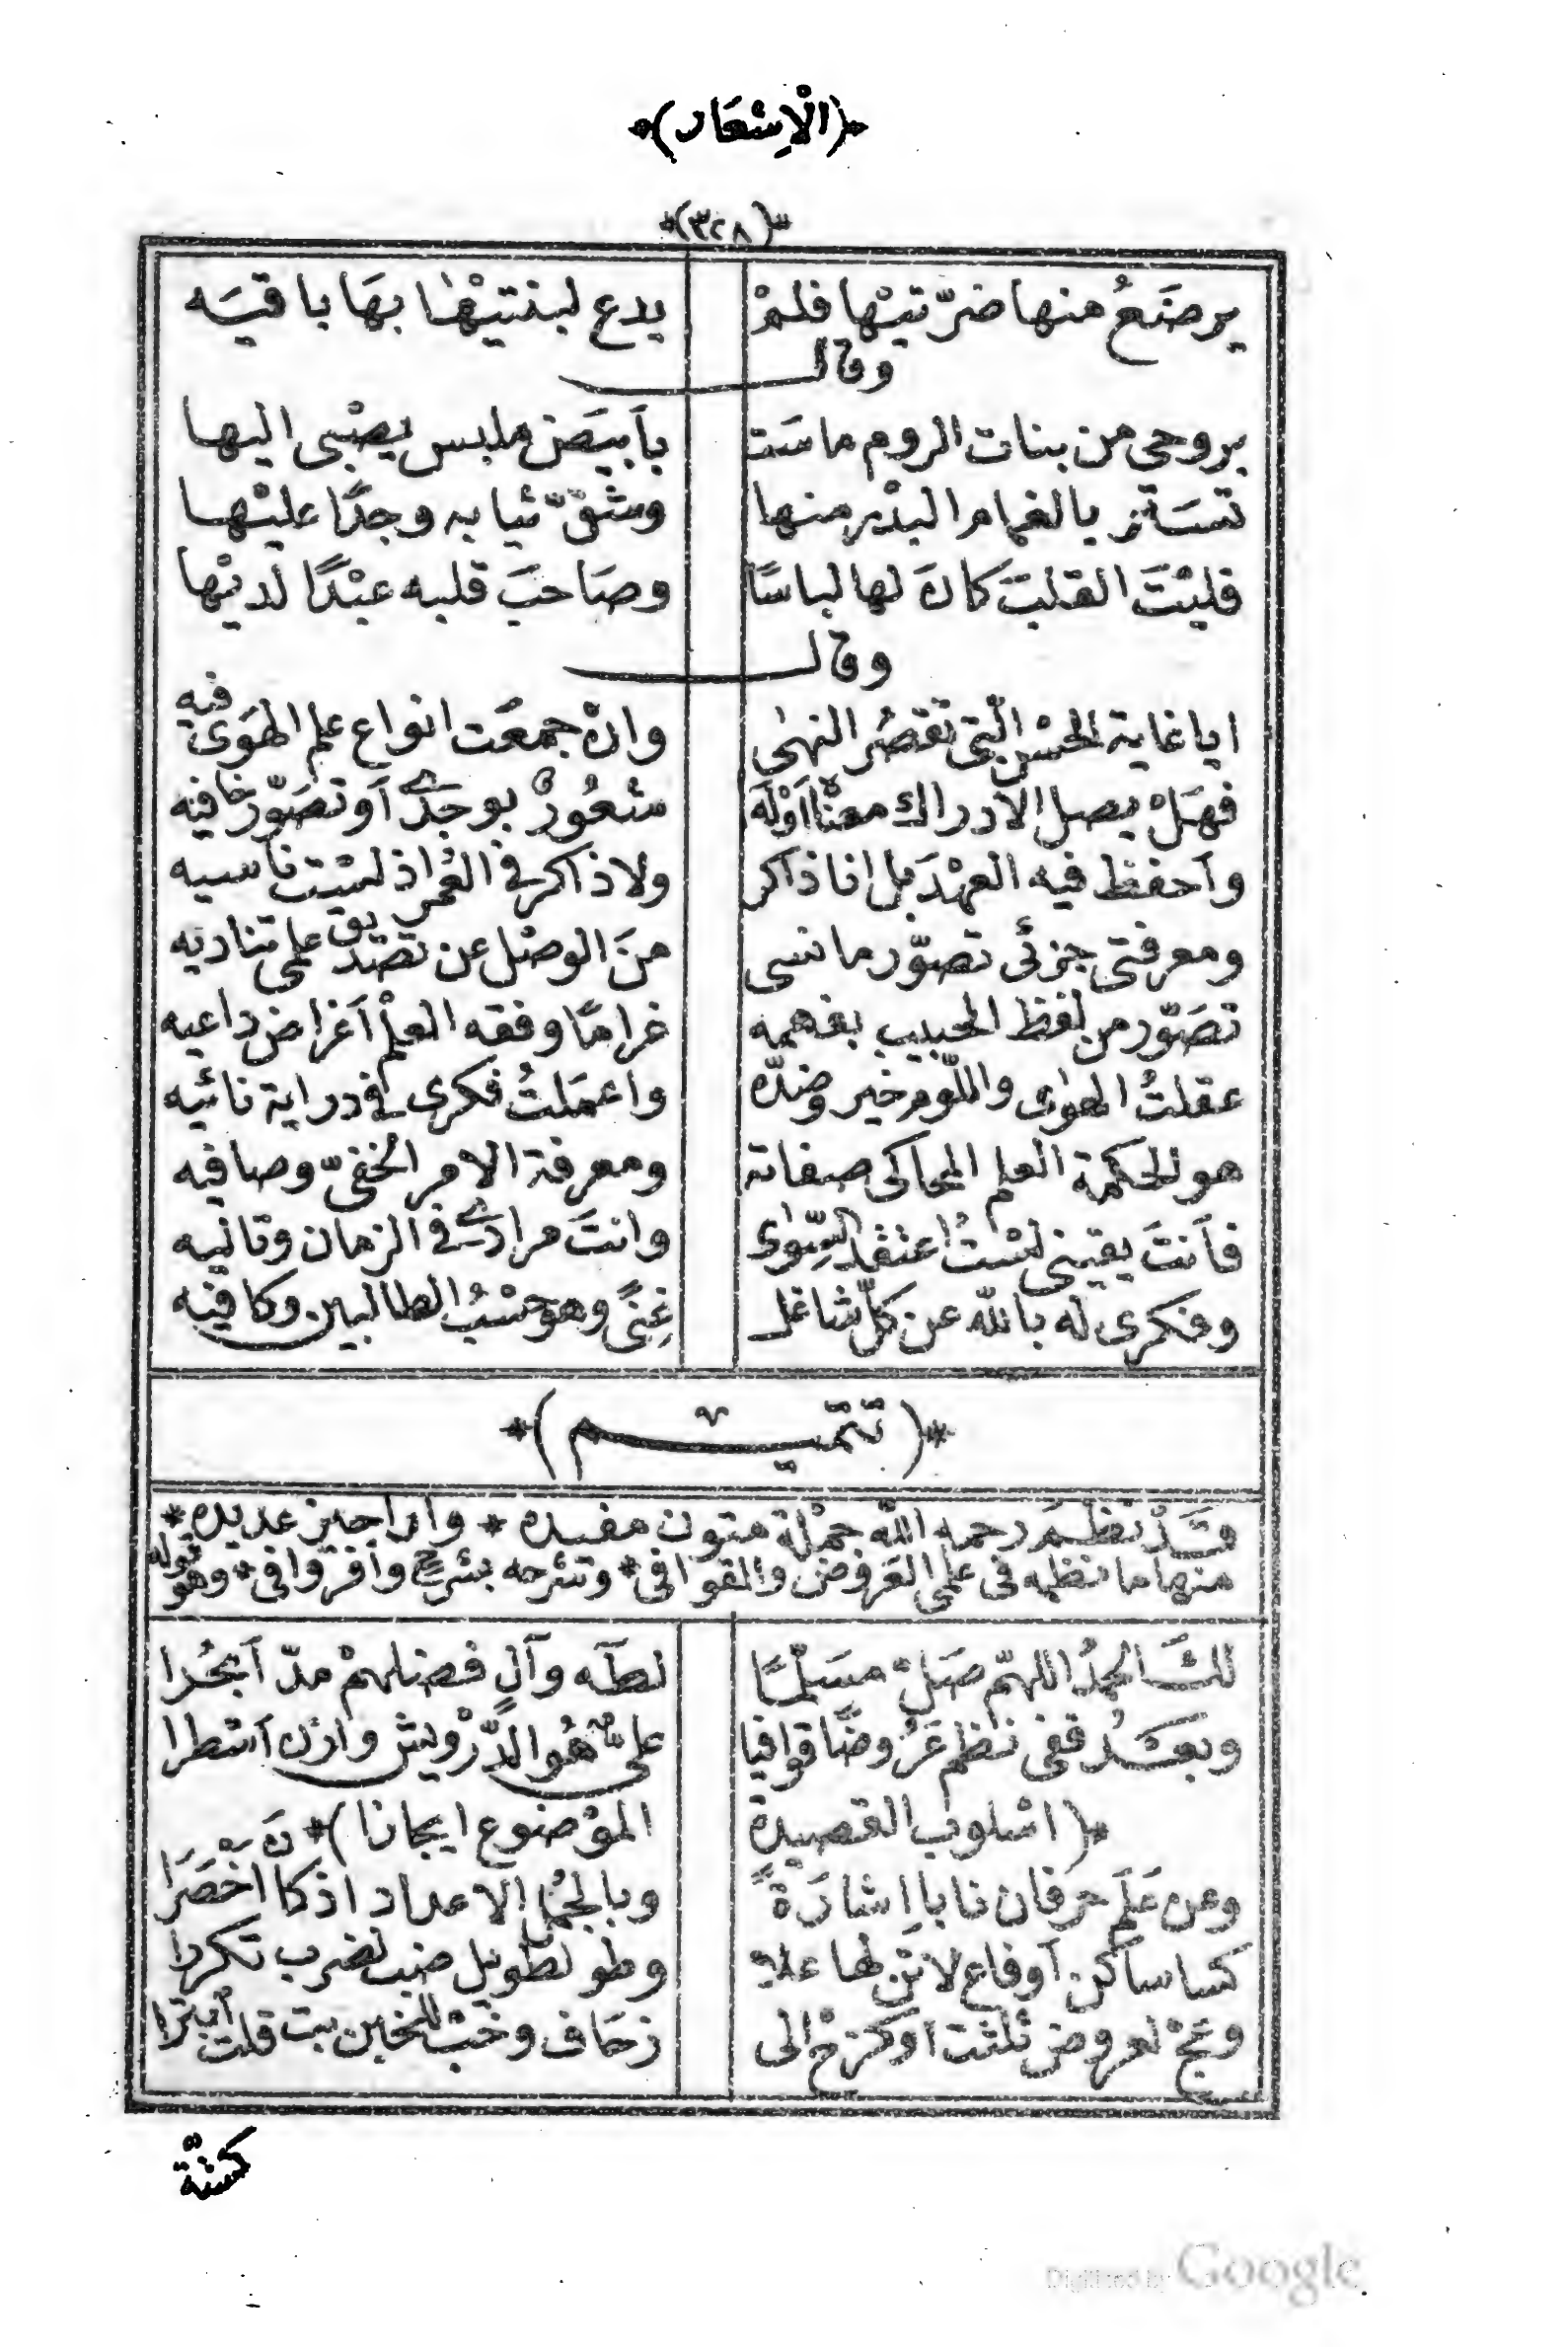 ﴿(الْاِشْعَار)﴾
*(٣٢٨)*
يرضَعُ منها ضرّتيْها فلمْ يدع لبنتيْها بهَا باقيَه
وقال
بروحى من بنات الروم ماسَت بأبيَض ملبس يصْبى اليها
تستر بالغمام البدْر منها وشقّ ثيابه وجدًا عليْها
فليْتَ القلبَ كانَ لها لباسًا وصَاحبَ قلبه عبْدًا لديْها
وقال
ايا غاية الحسْن الّتى تقصُر النهٰى وانْ جمعَت انواع علم الهَوَى فيه
فهَلْ يصل الادراك معنًا اوْلَه شعُورٌ بوجدى أو تصَوّر خافيه
وأحفظ فيه العهْدَ بل انا ذاكر ولا ذاكر فى العُمْر اذ لسْت ناسيه
ومعرفتى جزئى تصوّر ما نسى منَ الوصْل عن تصديق علمى تناديه
تصَوّر من لفظ الحبيب بفهمه غرامًا وفقه العلْم أغراض داعيه
عقلتُ الهوٰى واللّوم خير وضدّه واعمَلتُ فكرى فى دراية نائيه
هو الحكمة العلم المحاكى صفاته ومعرفة الامر الخفىّ وصافيه
فأنتَ يقينى لسْتُ اعتقد السِّوٰى وانتَ مرادى فى الزمان وتاليه
وفكرى له بالله عن كلّ شاغل غِنًى وهو حسْبُ الطالبين وكافيه
*(تتميم)*
وقَدْ نظمَ رحمه الله جمْلة متون مفيده * واراجيز عديده *
منها ما نظمه فى علمى العَروض والقوافى * وشرحه بشرح وافر وافى * وهو قوله
لكَ الحمدُ اللهمّ صَلّ مسَلّمًا لطٰه وآلٍ فضلهمْ مدّ أبحُرا
وبعَدُ ففى نظم عَرُوضًا قوافيا علىّ هُو الدّرْويش وازن أشطرا
*(اسْلوب القصيدة الموْضوع ايجازا)*
وعن عَلَم حرفان نابا إشارَةً وبالجُمل الاعداد اذ كان أخْصَرَا
كسا ساكن أوفاع لاتن لها علا وطو لطويل ضب لضرب تكررا
وعجْ لعروض ثلثت اوكزخ الى زحَاف وخبْ للخابن بيت قلت أبترا
كنّة